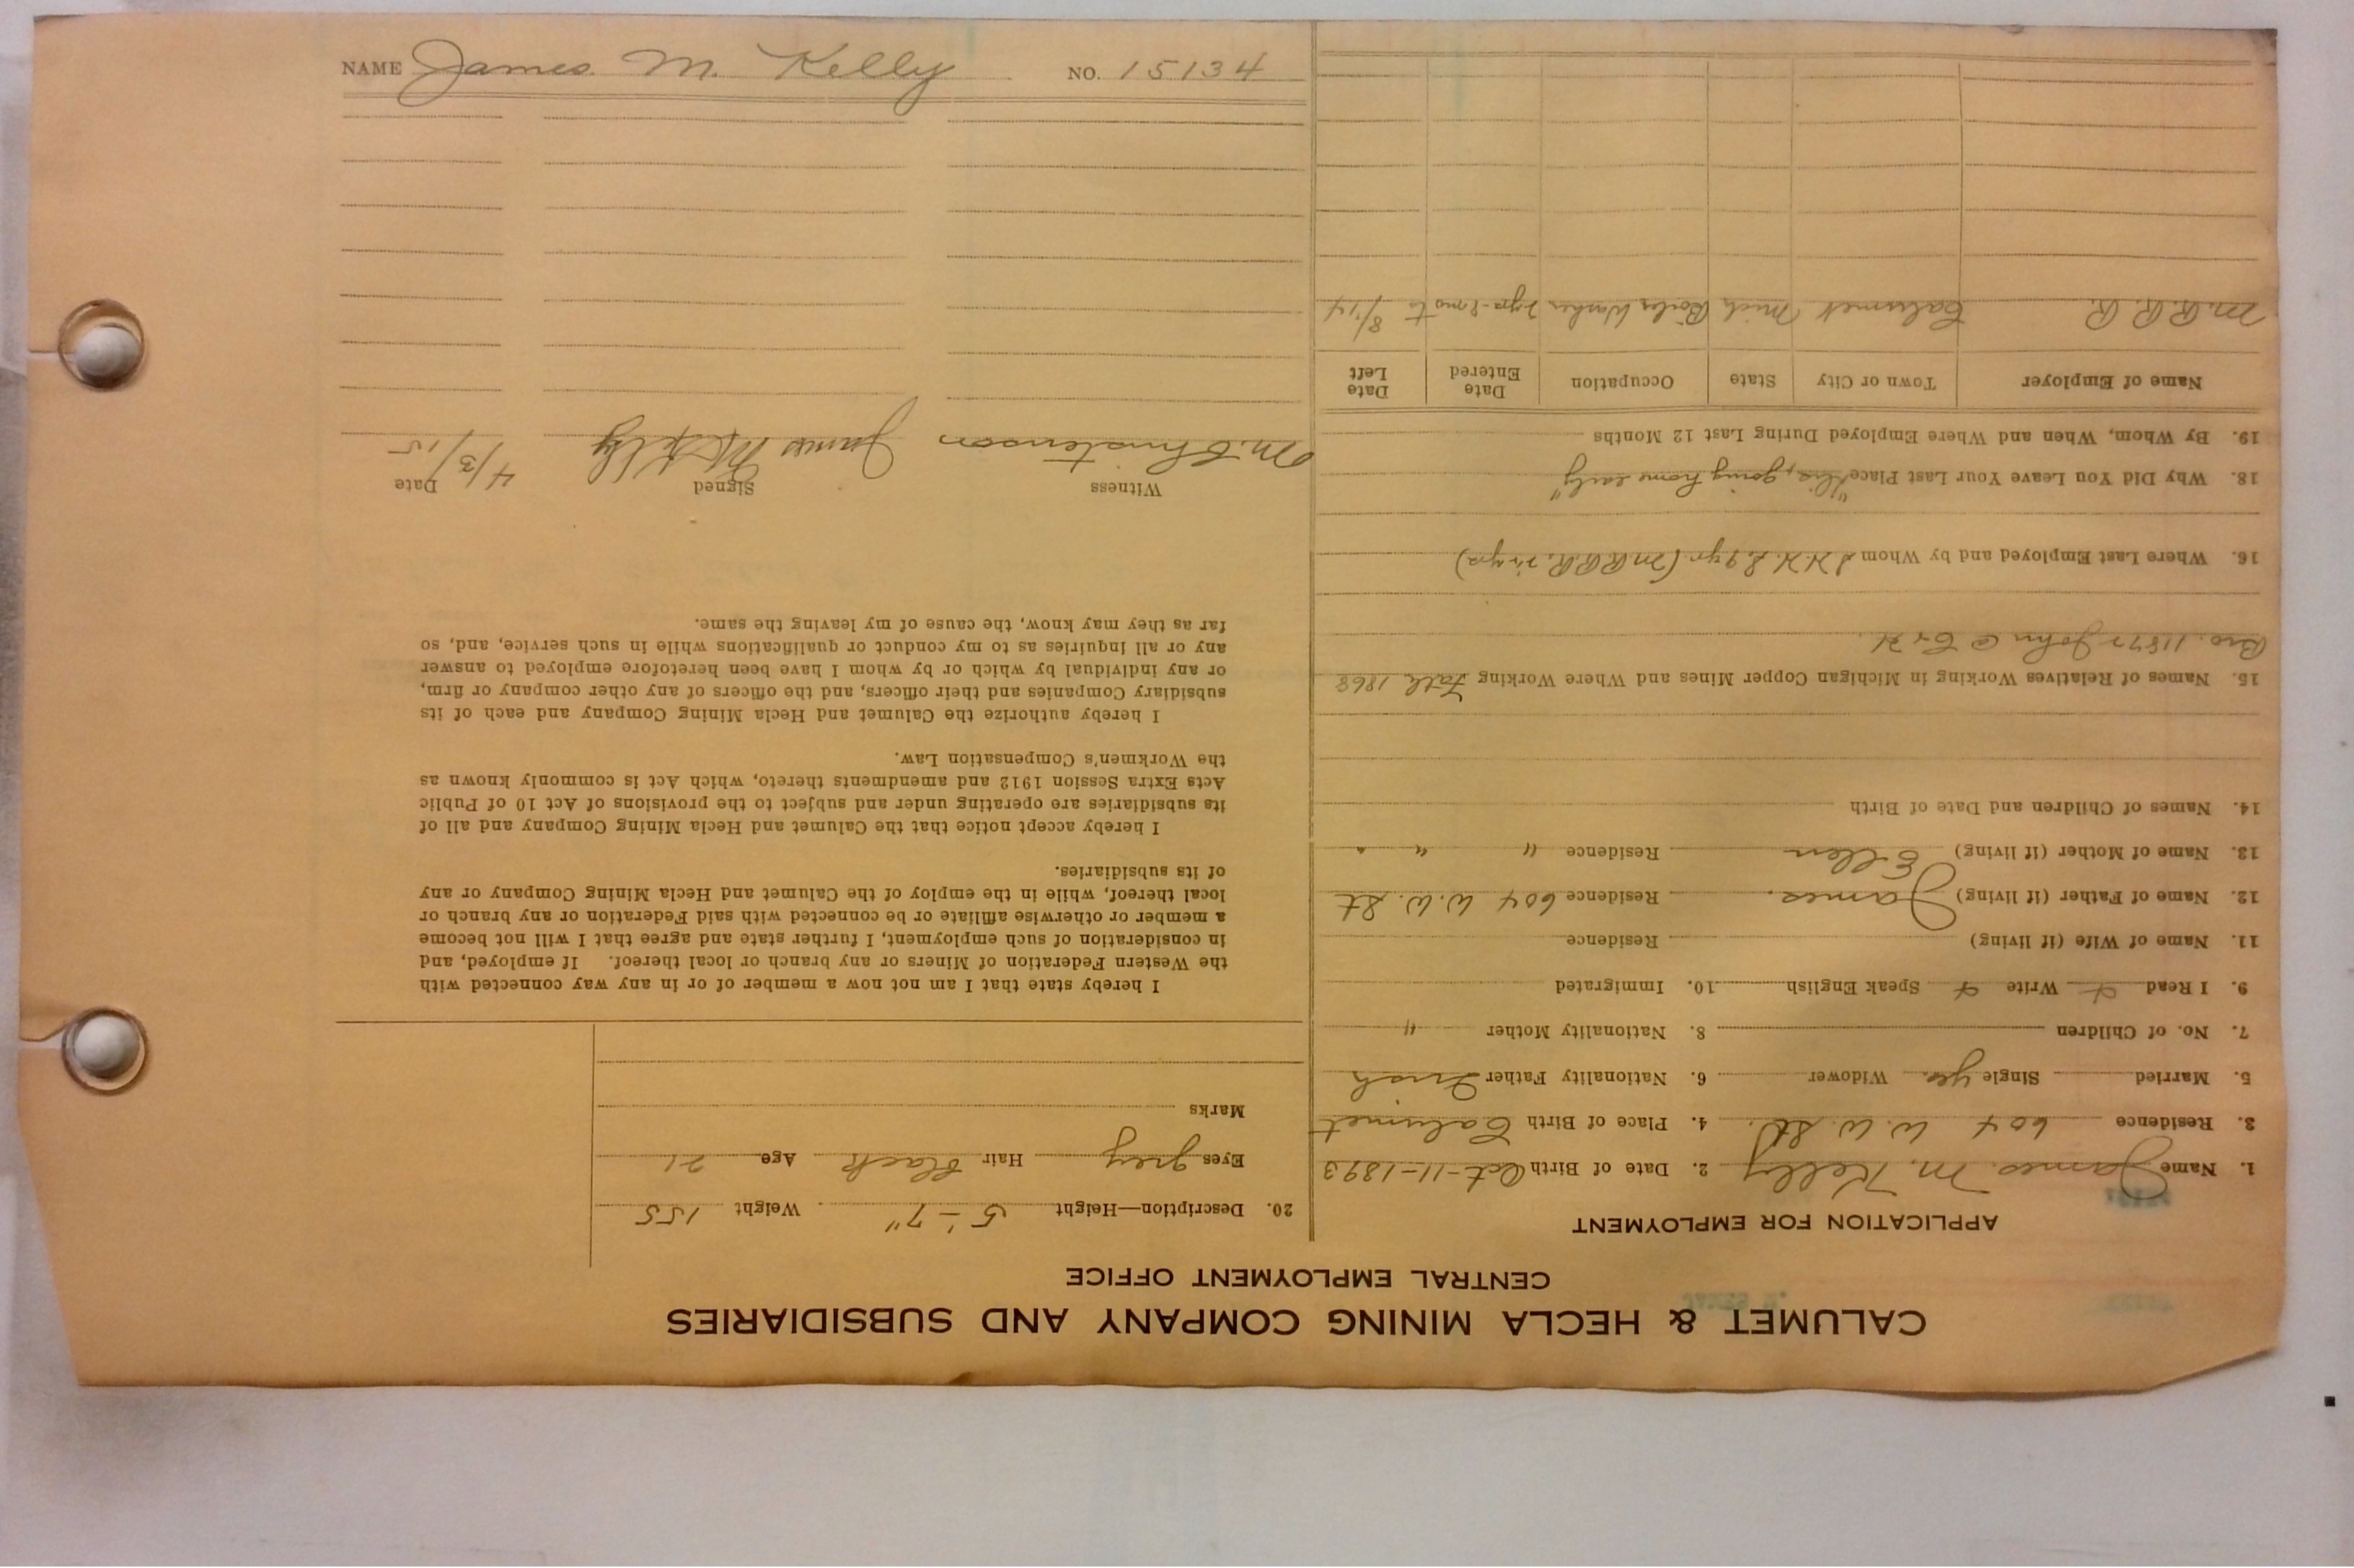 NAME James M. Kelly NO. 15134
CALUMET & HECLA MINING COMPANY AND SUBSIDIARIES
CENTRAL EMPLOYMENT OFFICE
APPLICATION FOR EMPLOYMENT
1. Name James M. Kelly 2. Date of Birth Oct-11-1893
3. Residence 604 W.W. St. 4. Place of Birth Calumet
5. Married Single yes. Widower 6. Nationality Father Irish
7. No. of Children 8. Nationality Mother "
9. I Read Write Speak English 10. Immigrated
11. Name of Wife (if living) Residence
12. Name of Father (if living) James. Residence 604 W.W. St
13. Name of Mother (if living) Ellen Residence " " "
14. Names of Children and Date of Birth
15. Names of Relatives Working in Michigan Copper Mines and Where Working 1868
Bro. 11872 John @ C+H.
16. Where Last Employed and by Whom (M.R.R.R.
18. Why Did You Leave Your Last Place going home early"
19. By Whom, When and Where Employed During Last 12 Months
Name of Employer Town or City State Occupation Date Entered Date Left
M.R.R.R. Calumet Mich Boiler Washer 8/14
20. Description—Height 5'-7" Weight 155
Eyes grey Hair black Age 21
Marks
I hereby state that I am not now a member of or in any way connected with
the Western Federation of Miners or any branch or local thereof. If employed, and
in consideration of such employment, I further state and agree that I will not become
a member or otherwise affiliate or be connected with said Federation or any branch or
local thereof, while in the employ of the Calumet and Hecla Mining Company or any
of its subsidiaries.
I hereby accept notice that the Calumet and Hecla Mining Company and all of
its subsidiaries are operating under and subject to the provisions of Act 10 of Public
Acts Extra Session 1912 and amendments thereto, which Act is commonly known as
the Workmen's Compensation Law.
I hereby authorize the Calumet and Hecla Mining Company and each of its
subsidiary Companies and their officers, and the officers of any other company or firm,
or any individual by which or by whom I have been heretofore employed to answer
any or all inquiries as to my conduct or qualifications while in such service, and, so
far as they may know, the cause of my leaving the same.
Witness Signed Date
M. Christenson James M Kelly 4/3/15